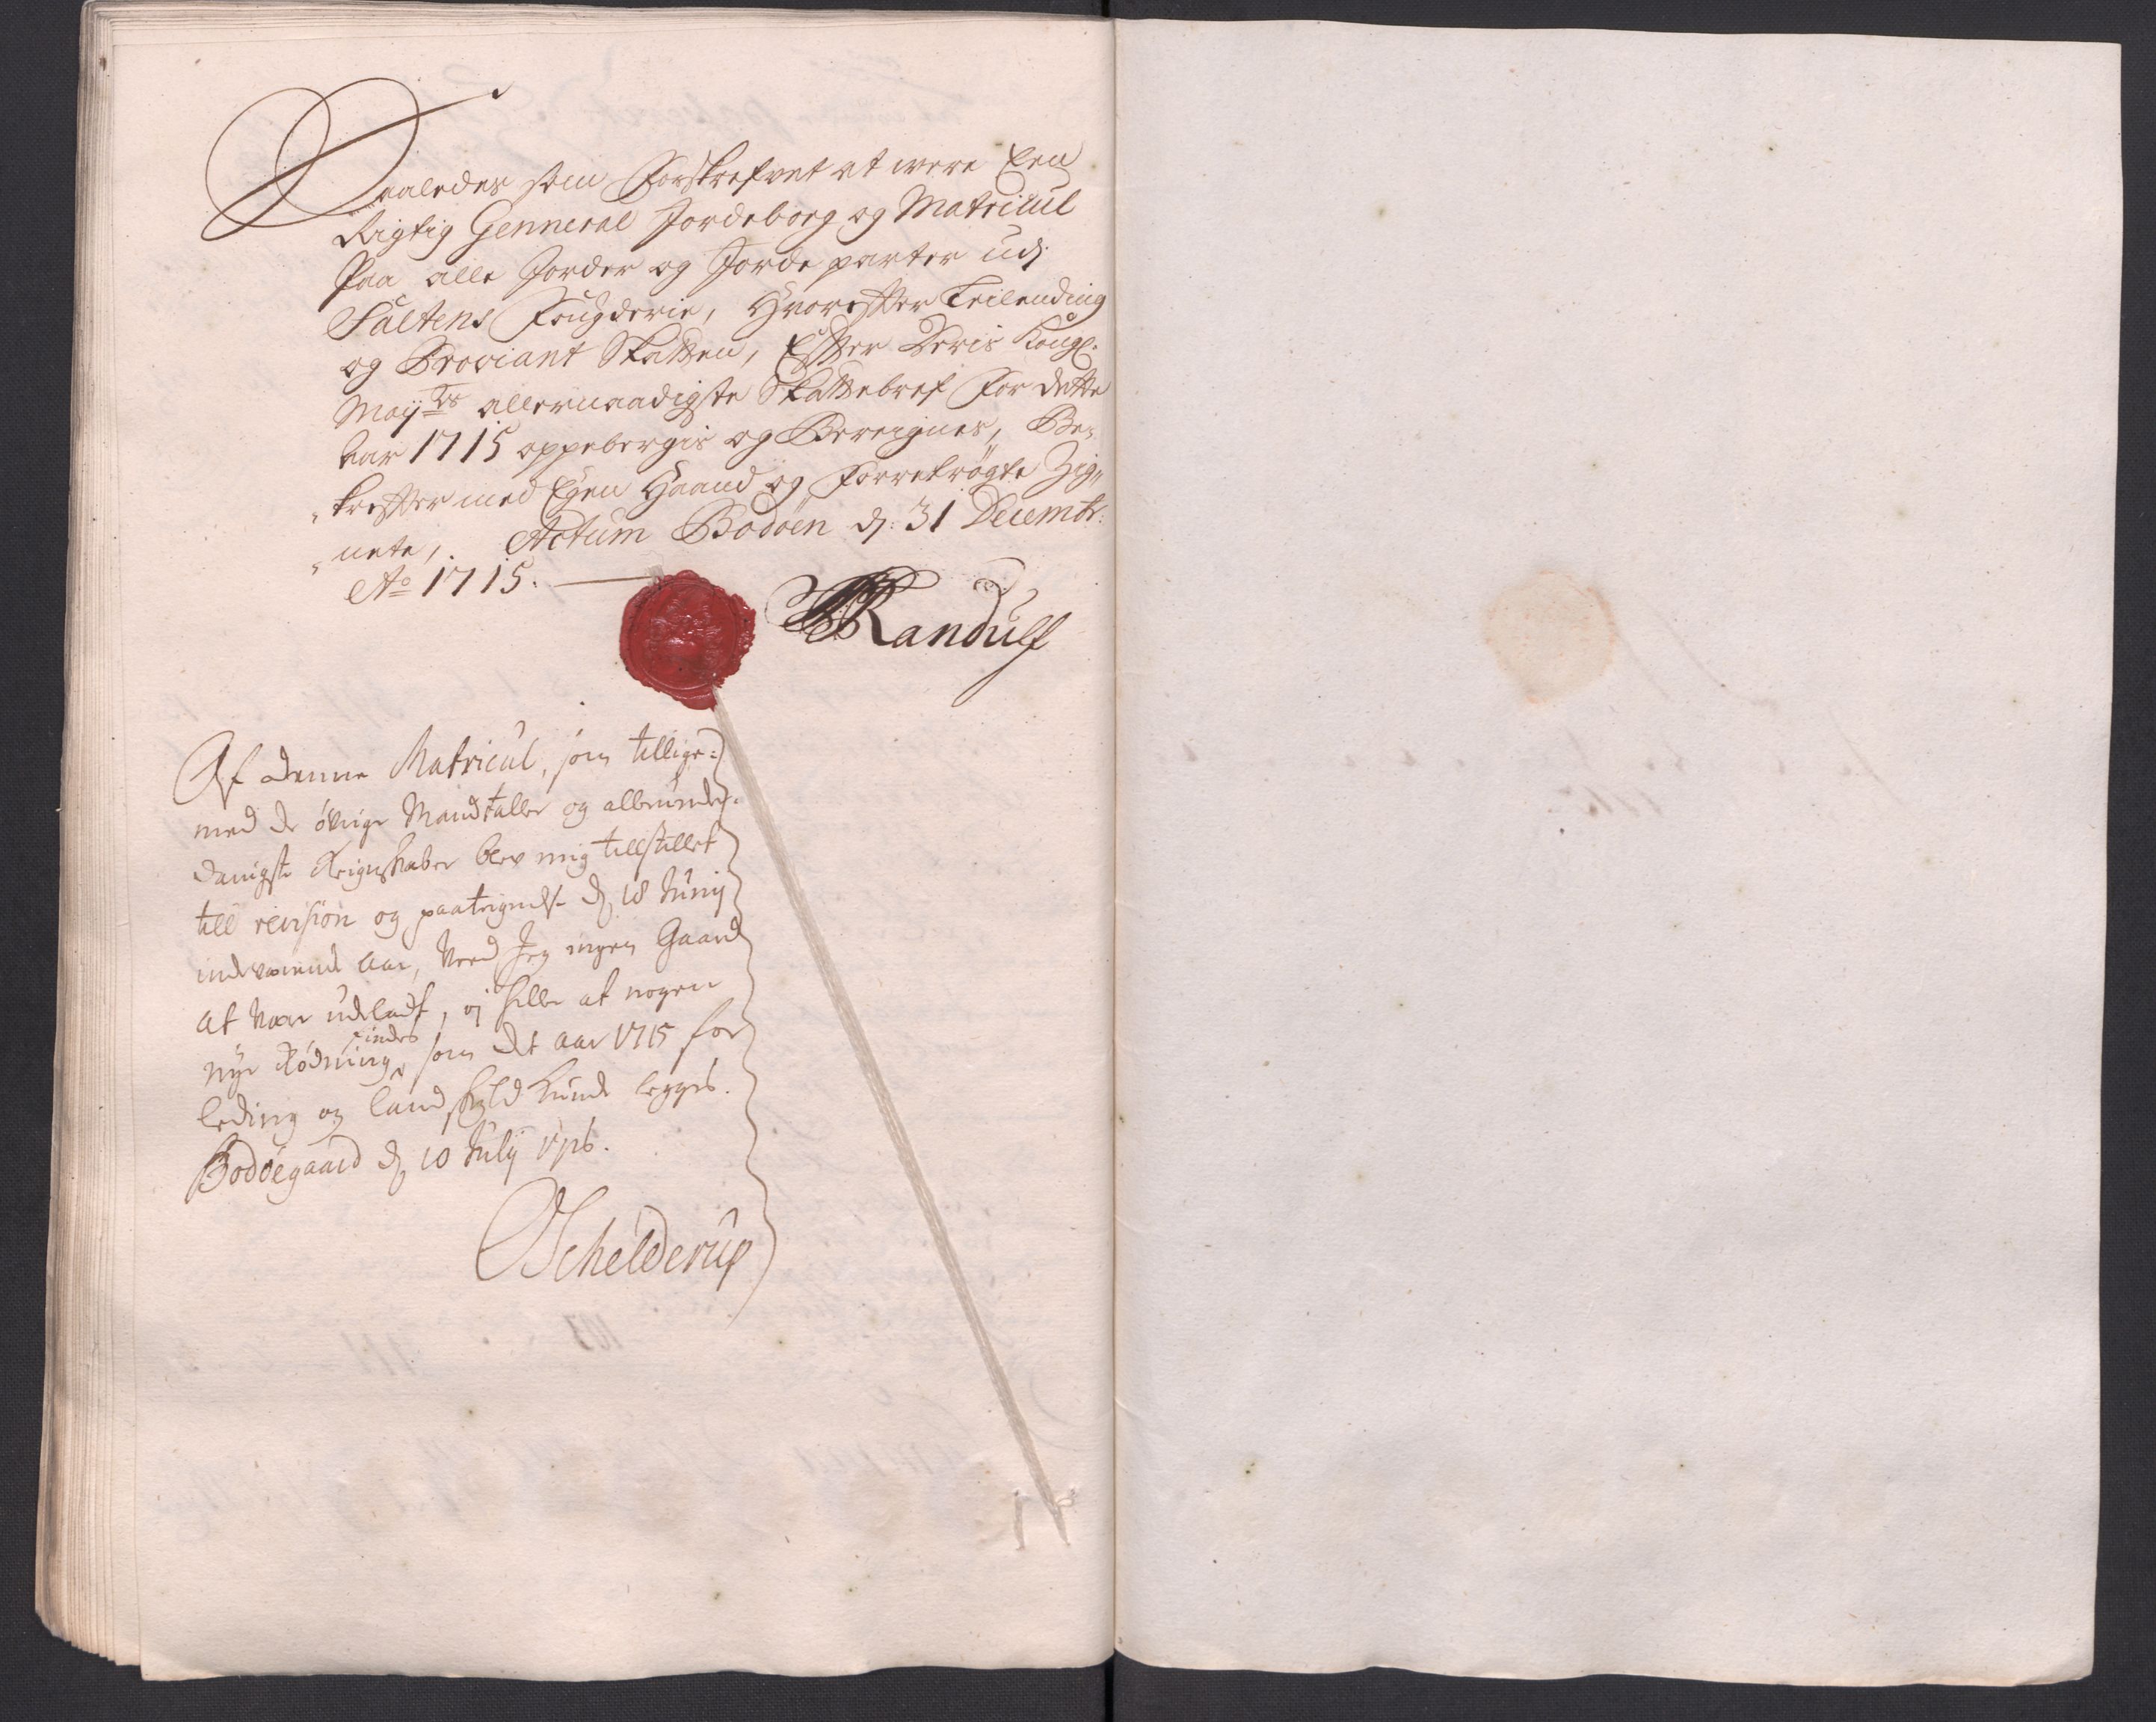 Saaledes som Forskrefvet at were Een
Rigtig Genneral Jordebog og Matricul
Paa alle Jorder og Jorde parter udj
Saltens Fougderie, Hvorefter Leilending
og Proviant Skatten, Efter Deris Kongl:
Mayts allernaadigste Skattebref For dette
Aar 1715 oppebergis og Bereignes, Be„
„krefter med Egen Haand og Forretrögte Zig„
„nete, Actum Bodöen dj: 31 Decembr:
Ao 1715.
Randulf
Af denne Matricul, som tillige:
med de öfrige Mandtaller og allerunder:
danigste Reignskaber blev mig tillstillet
till revision og paategnelse dj 18 Junij
indeværende Aar, veed Jeg ingen Gaard
at være udeladt, ej heller at nogen
nye Rödning findes som det Aar 1715 for
leding og landskyld kunde legges.
Bodöegaard dj 10 Julij 1716.
Schelderup